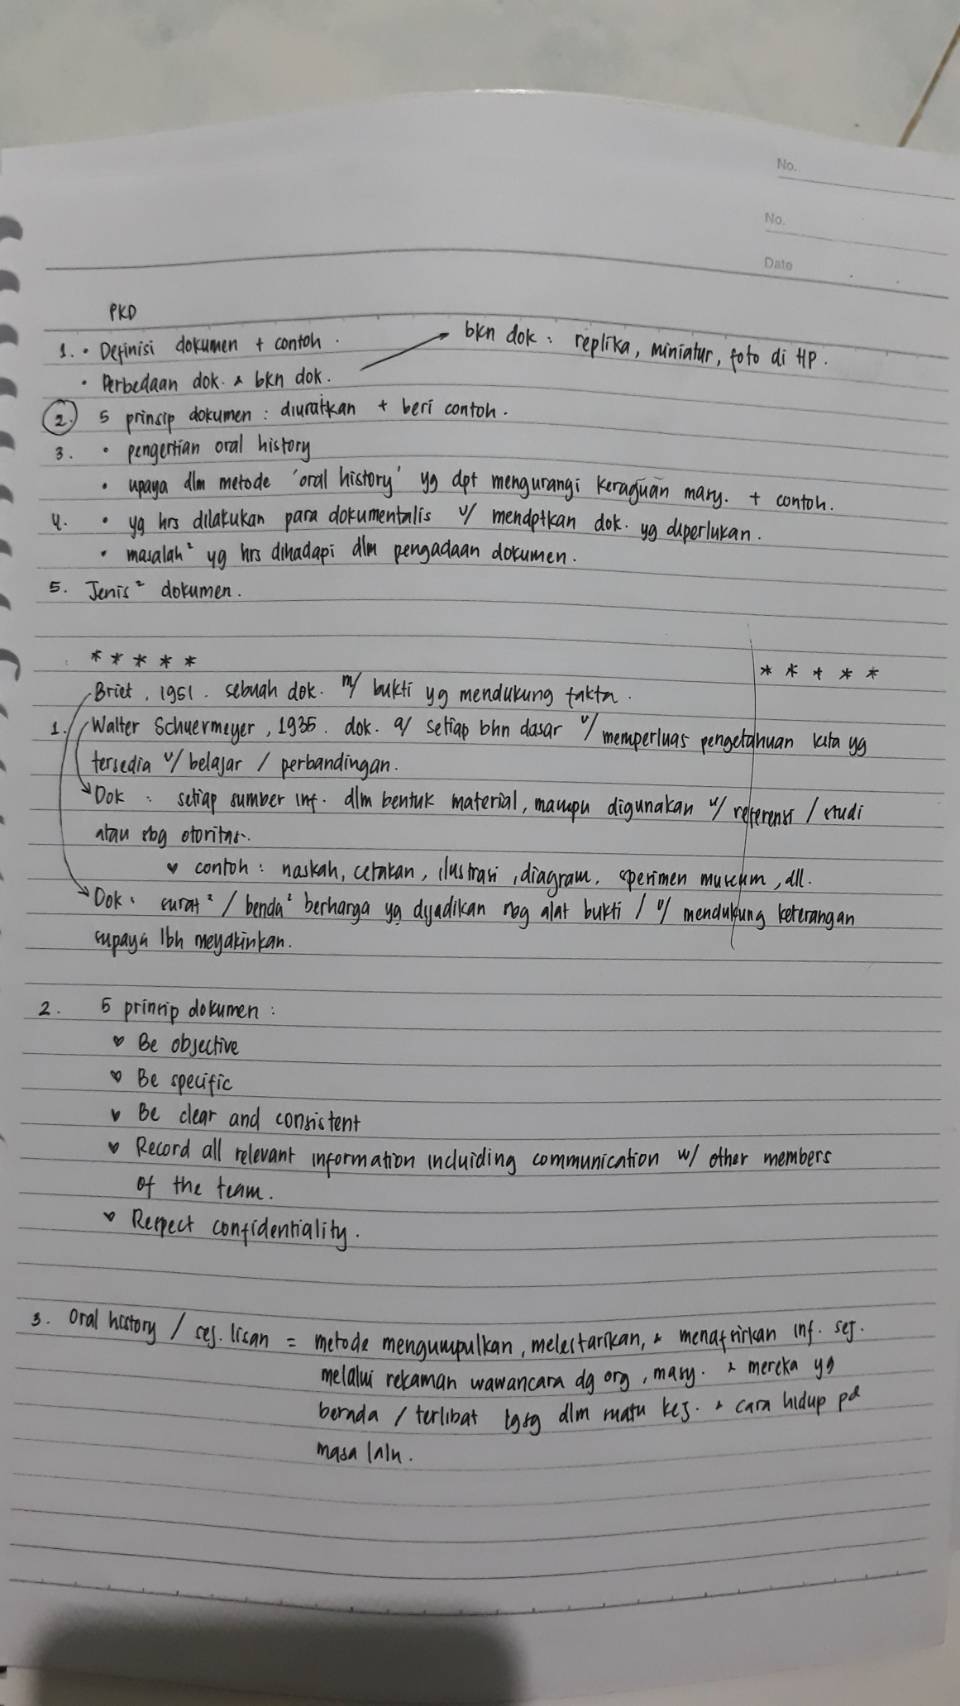 No.
No.
Date
PKD
1. • Definisi dokumen + contoh.
bkn dok : replika, miniatur, foto di HP.
• Perbedaan dok. & bkn dok.
2. 5 prinsip dokumen : diuraikan + beri contoh.
3. • pengertian oral history
• upaya dlm metode 'oral history' yg dpt mengurangi keraguan masy. + contoh.
4. • yg hrs dilakukan para dokumentalis u/ mendptkan dok. yg diperlukan.
• masalah² yg hrs dihadapi dlm pengadaan dokumen.
5. Jenis² dokumen.
* * * * *
* * * * *
Briet, 1951. sebuah dok. m/ bukti yg mendukung fakta.
1. Walter Schuermeyer, 1935. dok. a/ setiap bhn dasar u/ memperluas pengetahuan kita yg
tersedia u/ belajar / perbandingan.
Dok : setiap sumber inf. dlm bentuk material, mampu digunakan u/ referensi / studi
atau sbg otoritas.
contoh : naskah, cetakan, ilustrasi, diagram, spesimen museum, dll.
Dok : surat² / benda² berharga yg dijadikan sbg alat bukti / u/ mendukung keterangan
supaya lbh meyakinkan.
2. 5 prinsip dokumen :
Be objective
Be specific
Be clear and consistent
Record all relevant information incluiding communication w/ other members
of the team.
Respect confidentiality.
3. Oral history / sej. lisan = metode mengumpulkan, melestarikan, & menafsirkan inf. sej.
melalui rekaman wawancara dg org, masy. & mereka yg
berada / terlibat lgsg dlm suatu kej. & cara hidup pd
masa lalu.